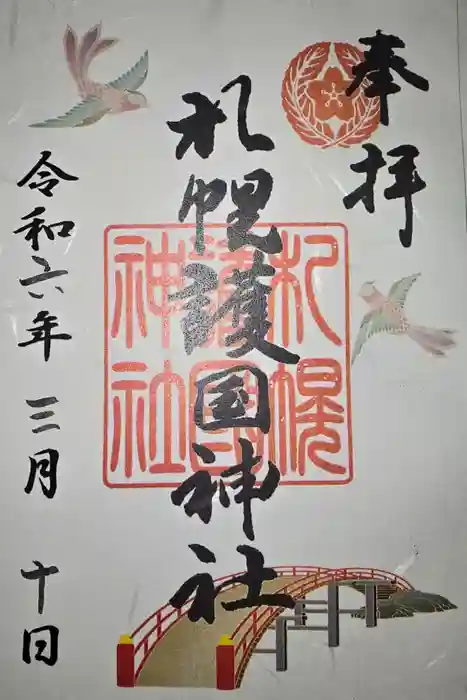 奉拝
札幌護国神社
札幌
護国
神社
令和六年 三月 十日